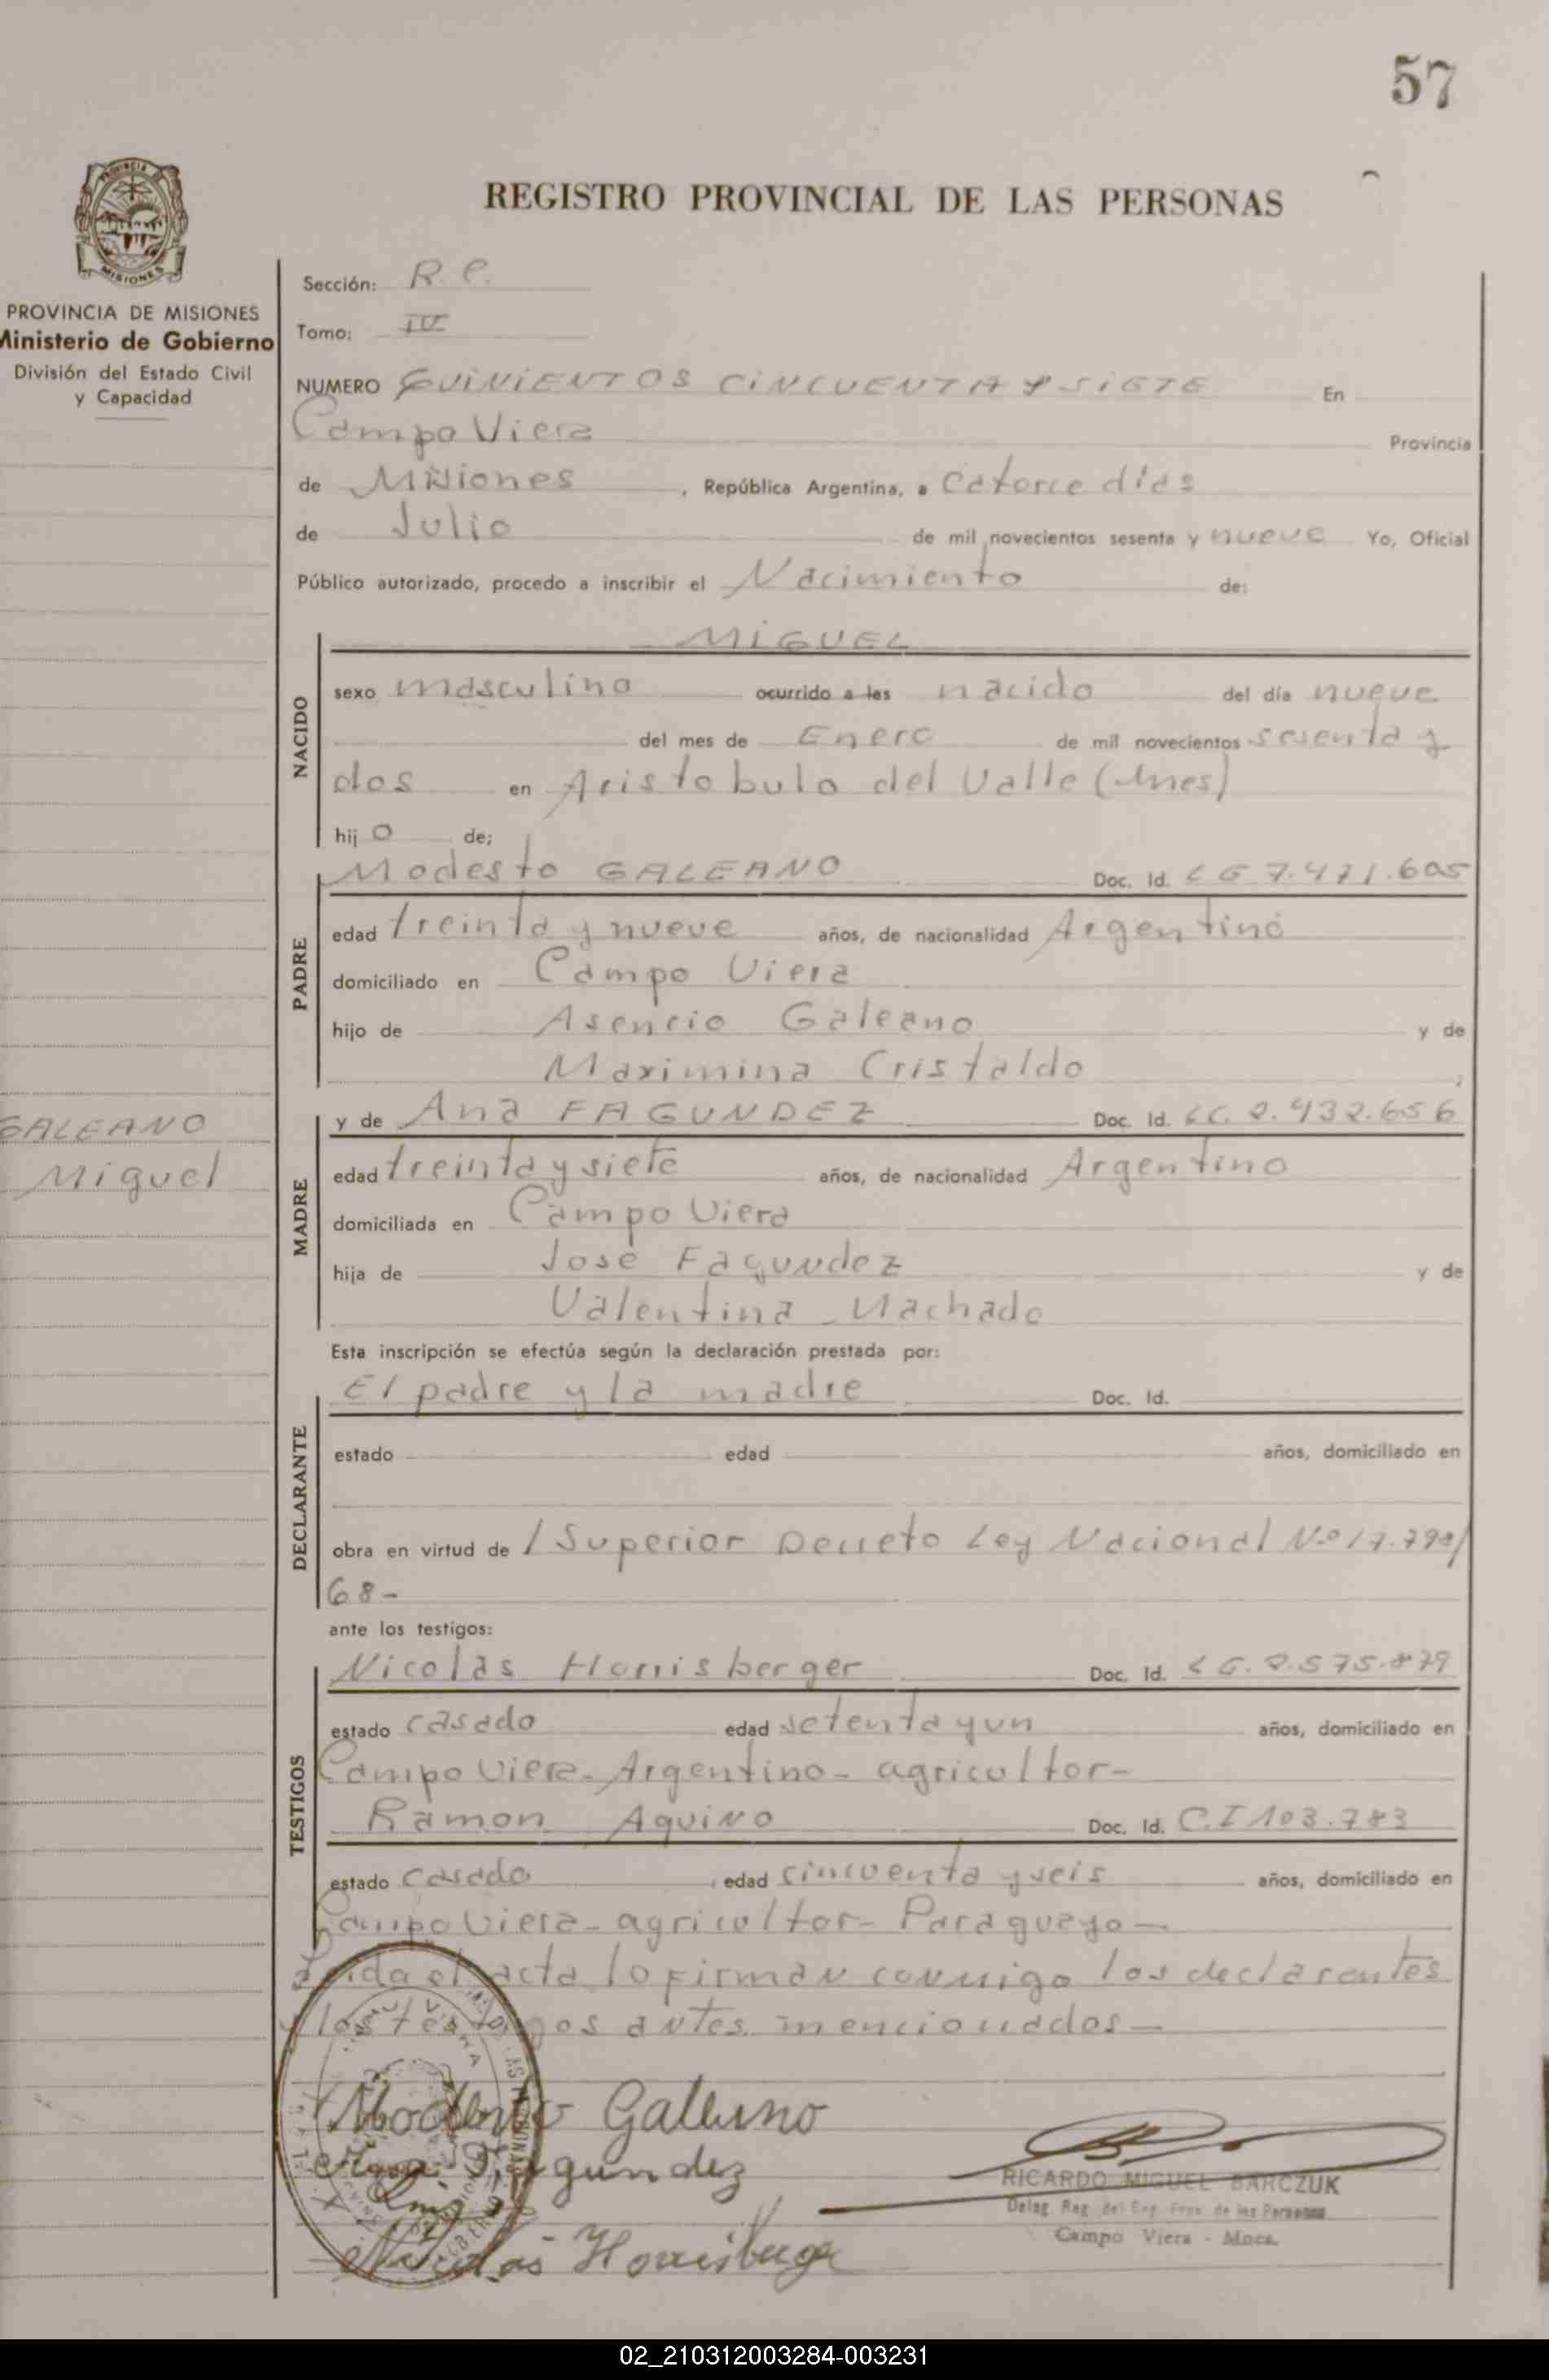 57
REGISTRO PROVINCIAL DE LAS PERSONAS
PROVINCIA DE MISIONES
Ministerio de Gobierno
División del Estado Civil
y Capacidad
Sección: R. C.
Tomo: IV
NUMERO QUINIENTOS CINCUENTA Y SIETE En
Campo Viera Provincia
de Misiones, República Argentina, a Catorce días
de Julio de mil novecientos sesenta y nueve Yo, Oficial
Público autorizado, procedo a inscribir el Nacimiento de:
MIGUEL
NACIDO
sexo masculino ocurrido a las nacido del día nueve
del mes de Enero de mil novecientos sesenta y
dos en Aristobulo del Valle (Mnes)
hijo de;
PADRE
Modesto GALEANO Doc. Id.
edad treinta y nueve años, de nacionalidad Argentino
domiciliado en Campo Viera
hijo de Asencio Galeano y de
Maximina Cristaldo
GALEANO
Miguel
MADRE
y de Ana FAGUNDEZ Doc. Id. LC. 2.432.656
edad treinta y siete años, de nacionalidad Argentino
domiciliada en Campo Viera
hija de José Fagundez y de
Valentina Machado
Esta inscripción se efectúa según la declaración prestada por:
DECLARANTE
El padre y la madre Doc. Id.
estado edad años, domiciliado en
obra en virtud de / Superior Decreto Ley Nacional Nº
68-
ante los testigos:
TESTIGOS
Nicolás Doc. Id.
estado casado edad setenta y un años, domiciliado en
Campo Viera- Argentino- agricultor-
Ramon Aquino Doc. Id. C.I 103.783
estado casado edad cincuenta y seis años, domiciliado en
Campo Viera- agricultor- Paraguayo-
Leida el acta lo firman conmigo los declarantes
y los testigos antes mencionados-
Modesto Galeano
Ana Fagundez
Nicolás
RICARDO MIGUEL BARCZUK
Campo Viera - Mnes.
02_210312003284-003231